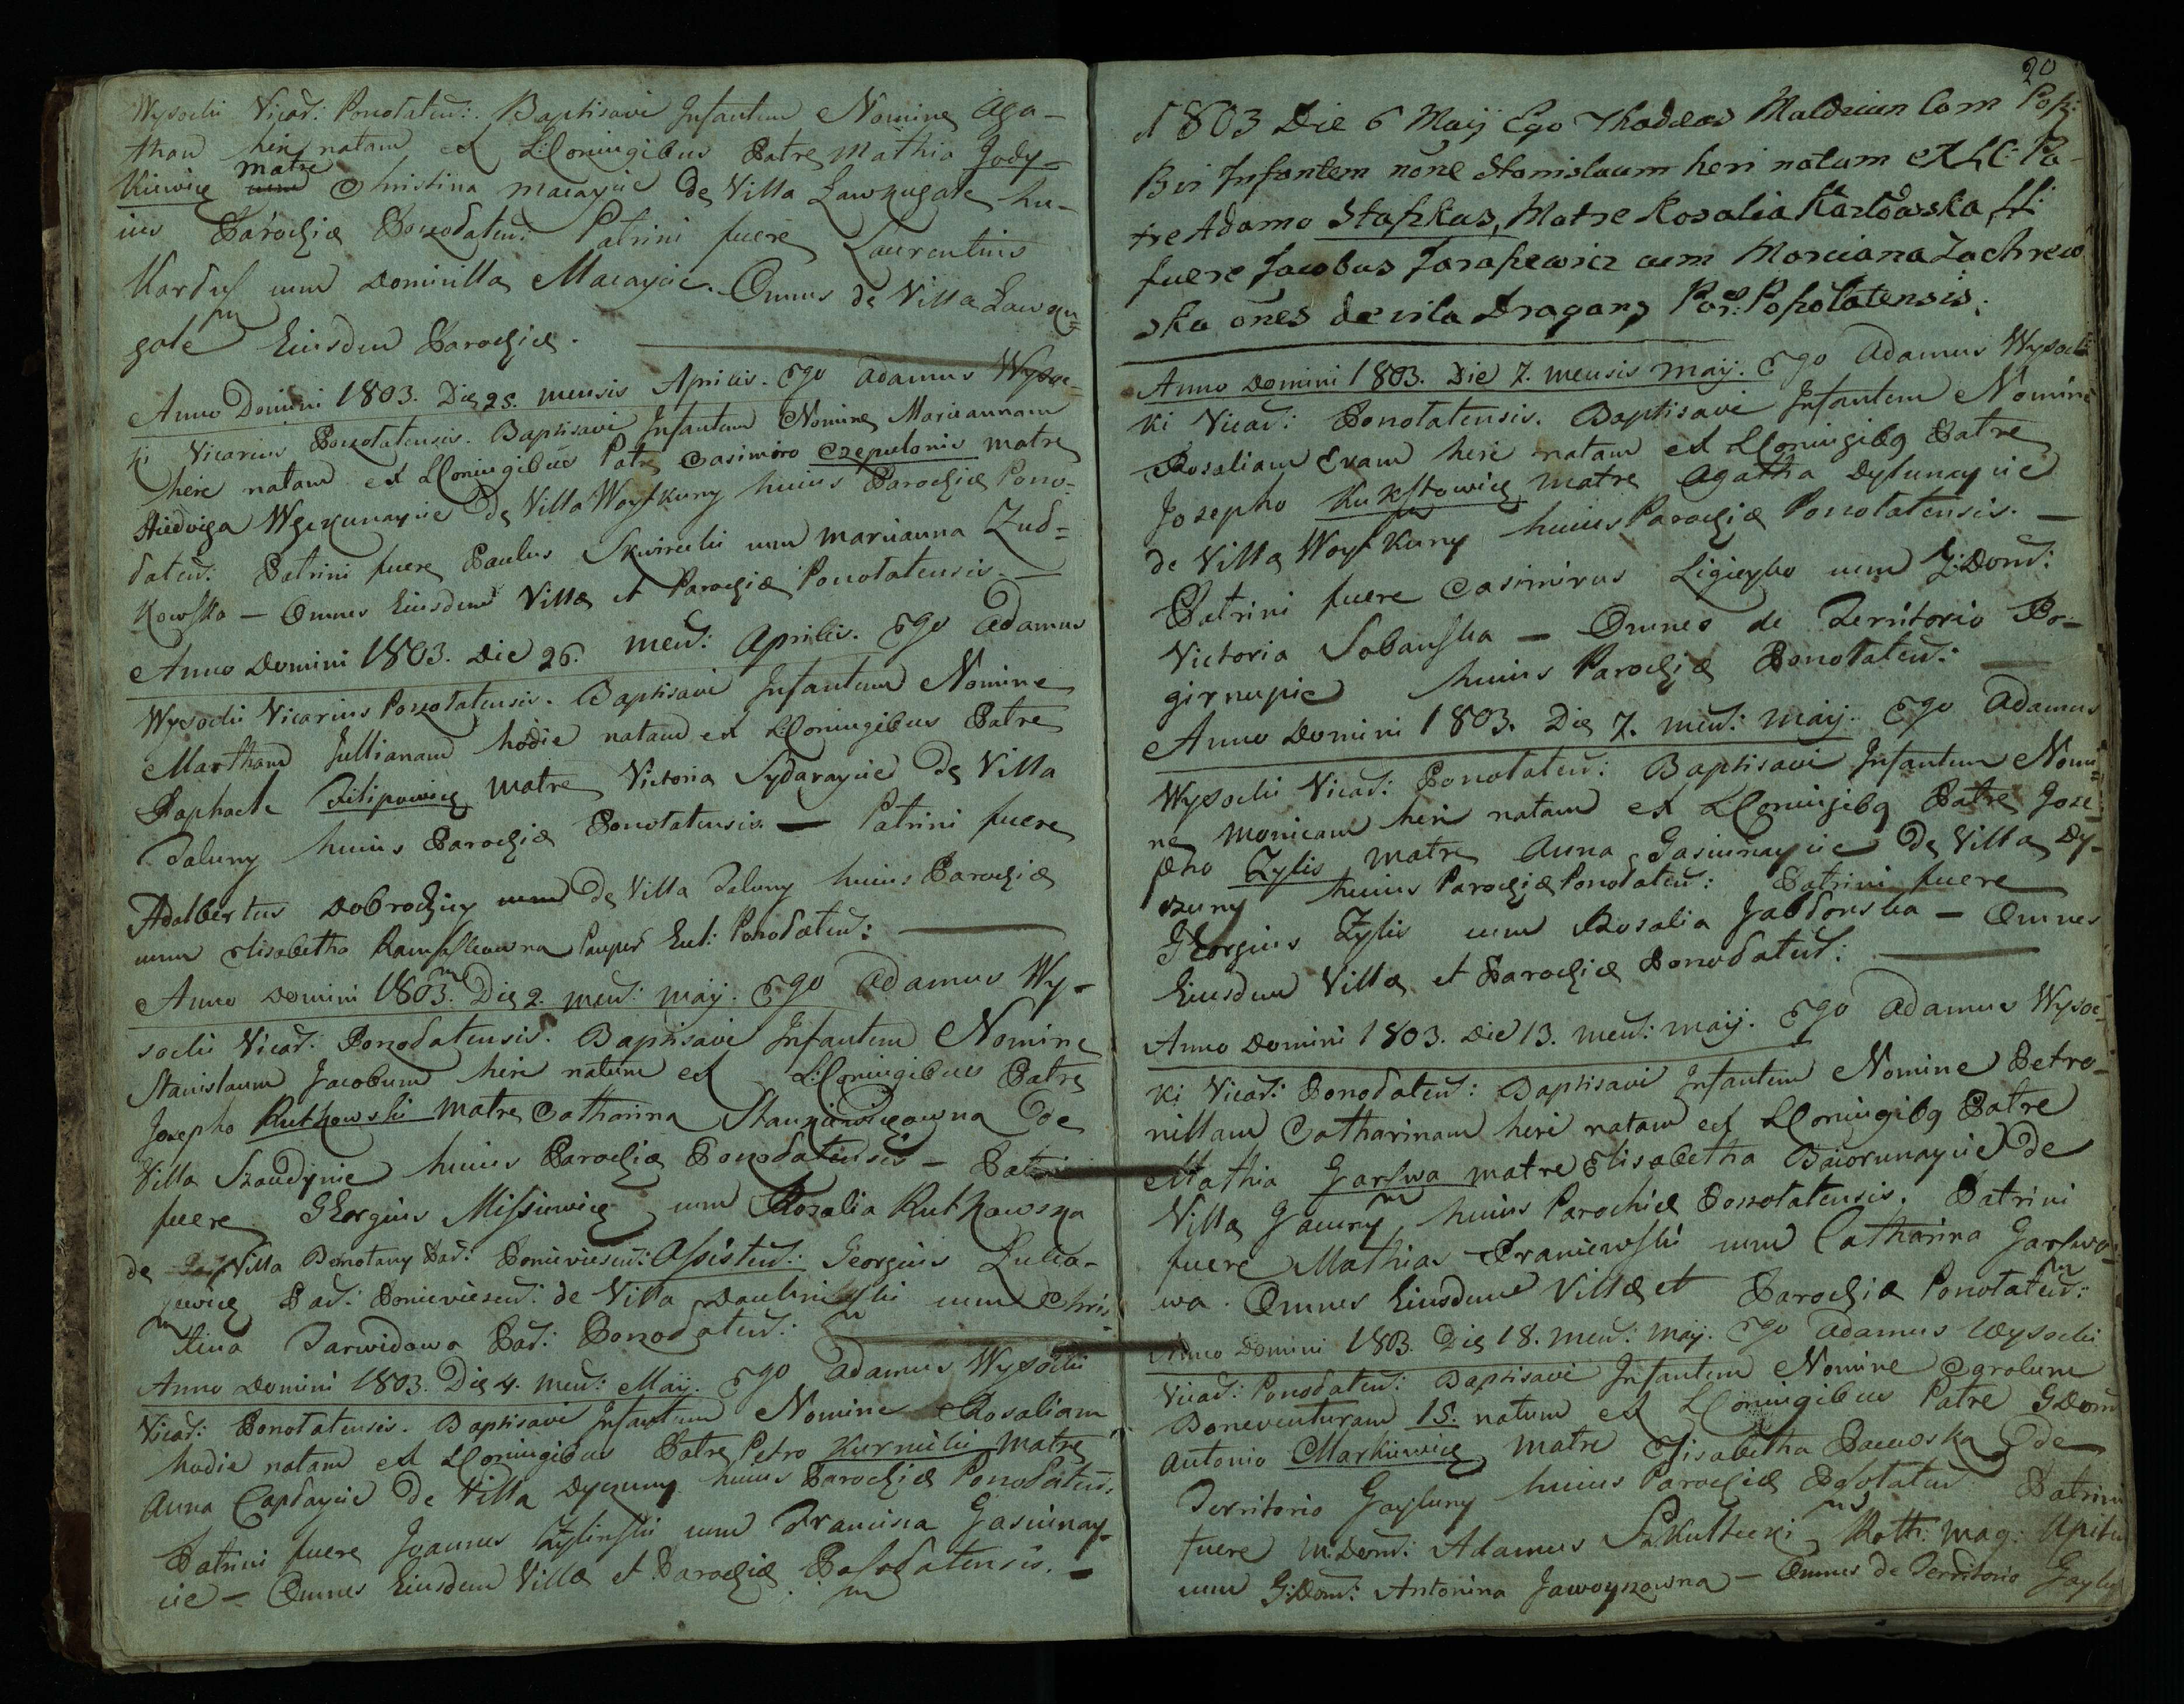 Wysocki Vicar: Poszołaten: Baptisavi Infantem Nomine Aga-
tham heri natam ex LConiugibus Patre Mathia Jody-
kiewicz matre Christina macaycie de Villa Ławkugale hu-
ius Parochiæ Poszołaten: Patrini fuere Laurentius
cum Dominilla Macaycie. Omnes de Villa Ławku=
gale Eiusdem Parochiæ.
Anno Domini 1803. Die 25. mensis Aprilis. Ego Adamus Wysoc-
ki Vicarius Poszołatensis. Baptisavi Infantem Nomine Mariannam
heri natam ex LConiugibus Patre Casimiro Czepulonis matre
Hedviga de Villa Woytkuny huius Parochiæ Poszo-
łaten: Patrini fuere Paulus Skwirecki cum marianna Zud=
kowska — Omnes Eiusdem Villæ et Parochiæ Poszołatensis. —
Anno Domini 1803. Die 26. men: Aprilis. Ego Adamus
Wysocki Vicarius Poszołatensis. Baptisavi Infantem Nomine
Martham Jullianam hodie natam ex LConiugibus Patre
Raphaele Filipowicz matre Victoria Sydaraycie de Villa
Taluny huius Parochiæ Poszołatensis — Patrini fuere
Adalbertus de Villa Taluny huius Parochiæ
cum Elisabetha Pauper Poszołaten: —
Anno Domini 1803. Die 2. men: maij. Ego Adamus Wy-
socki Vicar: Poszołatensis. Baptisavi Infantem Nomine
Stanislaum Jacobum heri natum ex LConiugibus Patre
Josepho Rutkowski matre Catharina Stankiewiczowna de
Villa Szaudynie huius Parochiæ Poszołatensis — Patrini
fuere Georgius Missiewicz cum Rosalia Rutkowska
de Villa Par: Poniewiesen: Assisten: Georgius
Par: Poniewiesen: de Villa cum Chris-
tina Tarwidowa Par: Poszołaten:
Anno Domini 1803. Die 4. men: Maij. Ego Adamus Wysocki
Vicar: Poszołatensis. Baptisavi Infantem Nomine Rosaliam
hodie natam ex LConiugibus Patre Petro Kurnicki matre
Anna Capłaycie de Villa Dyczuny huius Parochiæ Poszołaten:
Patrini fuere Joannes Zylinski cum Francisca Gasiunay-
cie — Omnes Eiusdem Villæ et Parochiæ Poszołatensis. —
20
1803 Die 6 Maij Ego Thadeus Maldziun Com Posz:
Bvi Infantem noñe Stanislaum heri natum ex LC: Pa-
tre Adamo Staszkus, Matre Rosalia Kozłowska, LL:
fuere Jacobus Taraszewicz cum Marciana Zachrew
ska oñes de vila Dragany Par: Poszołatensis.
Anno Domini 1803. Die 7. mensis maij. Ego Adamus Wysoc
ki Vicar: Poszołatensis. Baptisavi Infantem Nomine
Rosaliam Evam heri natam ex LConiugibq Patre
Josepho Kuksztowicz matre Agatha Dylunaycie
de Villa Woytkuny huius Parochiæ Poszołatensis. —
Patrini fuere Casimirus Ligieyko cum G:Dom:
Victoria Sobańska — Omnes de Territorio Po-
girnupie huius Parochiæ Poszołaten: —
Anno Domini 1803. Die 7. men: maij. Ego Adamus
Wysocki Vicar: Poszołaten: Baptisavi Infantem Nomi=
ne Monicam heri natam ex LConiugibq Patre Jose-
pho Zylis matre Anna Gasiunaycie de Villa Dy-
czuny huius Parochiæ Poszołaten: Patrini fuere
Georgius Zylis cum Rosalia Jabłonska — Omnes
Eiusdem Villæ et Parochiæ Poszołaten: —
Anno Domini 1803. Die 13. men: maij. Ego Adamus Wysoc-
ki Vicar: Poszołaten: Baptisavi Infantem Nomine Petro-
nillam Catharinam heri natam ex LConiugibq Patre
Mathia Garszwa matre Elisabetha Baiorunaycie de
Villa huius Parochiæ Poszołatensis. Patrini
fuere Mathias Franiewski cum Catharina Garszwo-
wa. Omnes Eiusdem Villæ et Parochiæ Poszołaten:
Anno Domini 1803. Die 18. men: maij. Ego Adamus Wysocki
Vicar: Poszołaten: Baptisavi Infantem Nomine Carolum
Boneventuram 15. natum ex LConiugibus Patre GDom
Antonio Markiewicz matre Elisabetha de
Territorio Gayluny huius Parochiæ Patrini
fuere M.Dom: Adamus Szkultecki Roth: Mag:
cum G:Dom: Antonina Jawoyszowna — Omnes de Territorio Gaylu